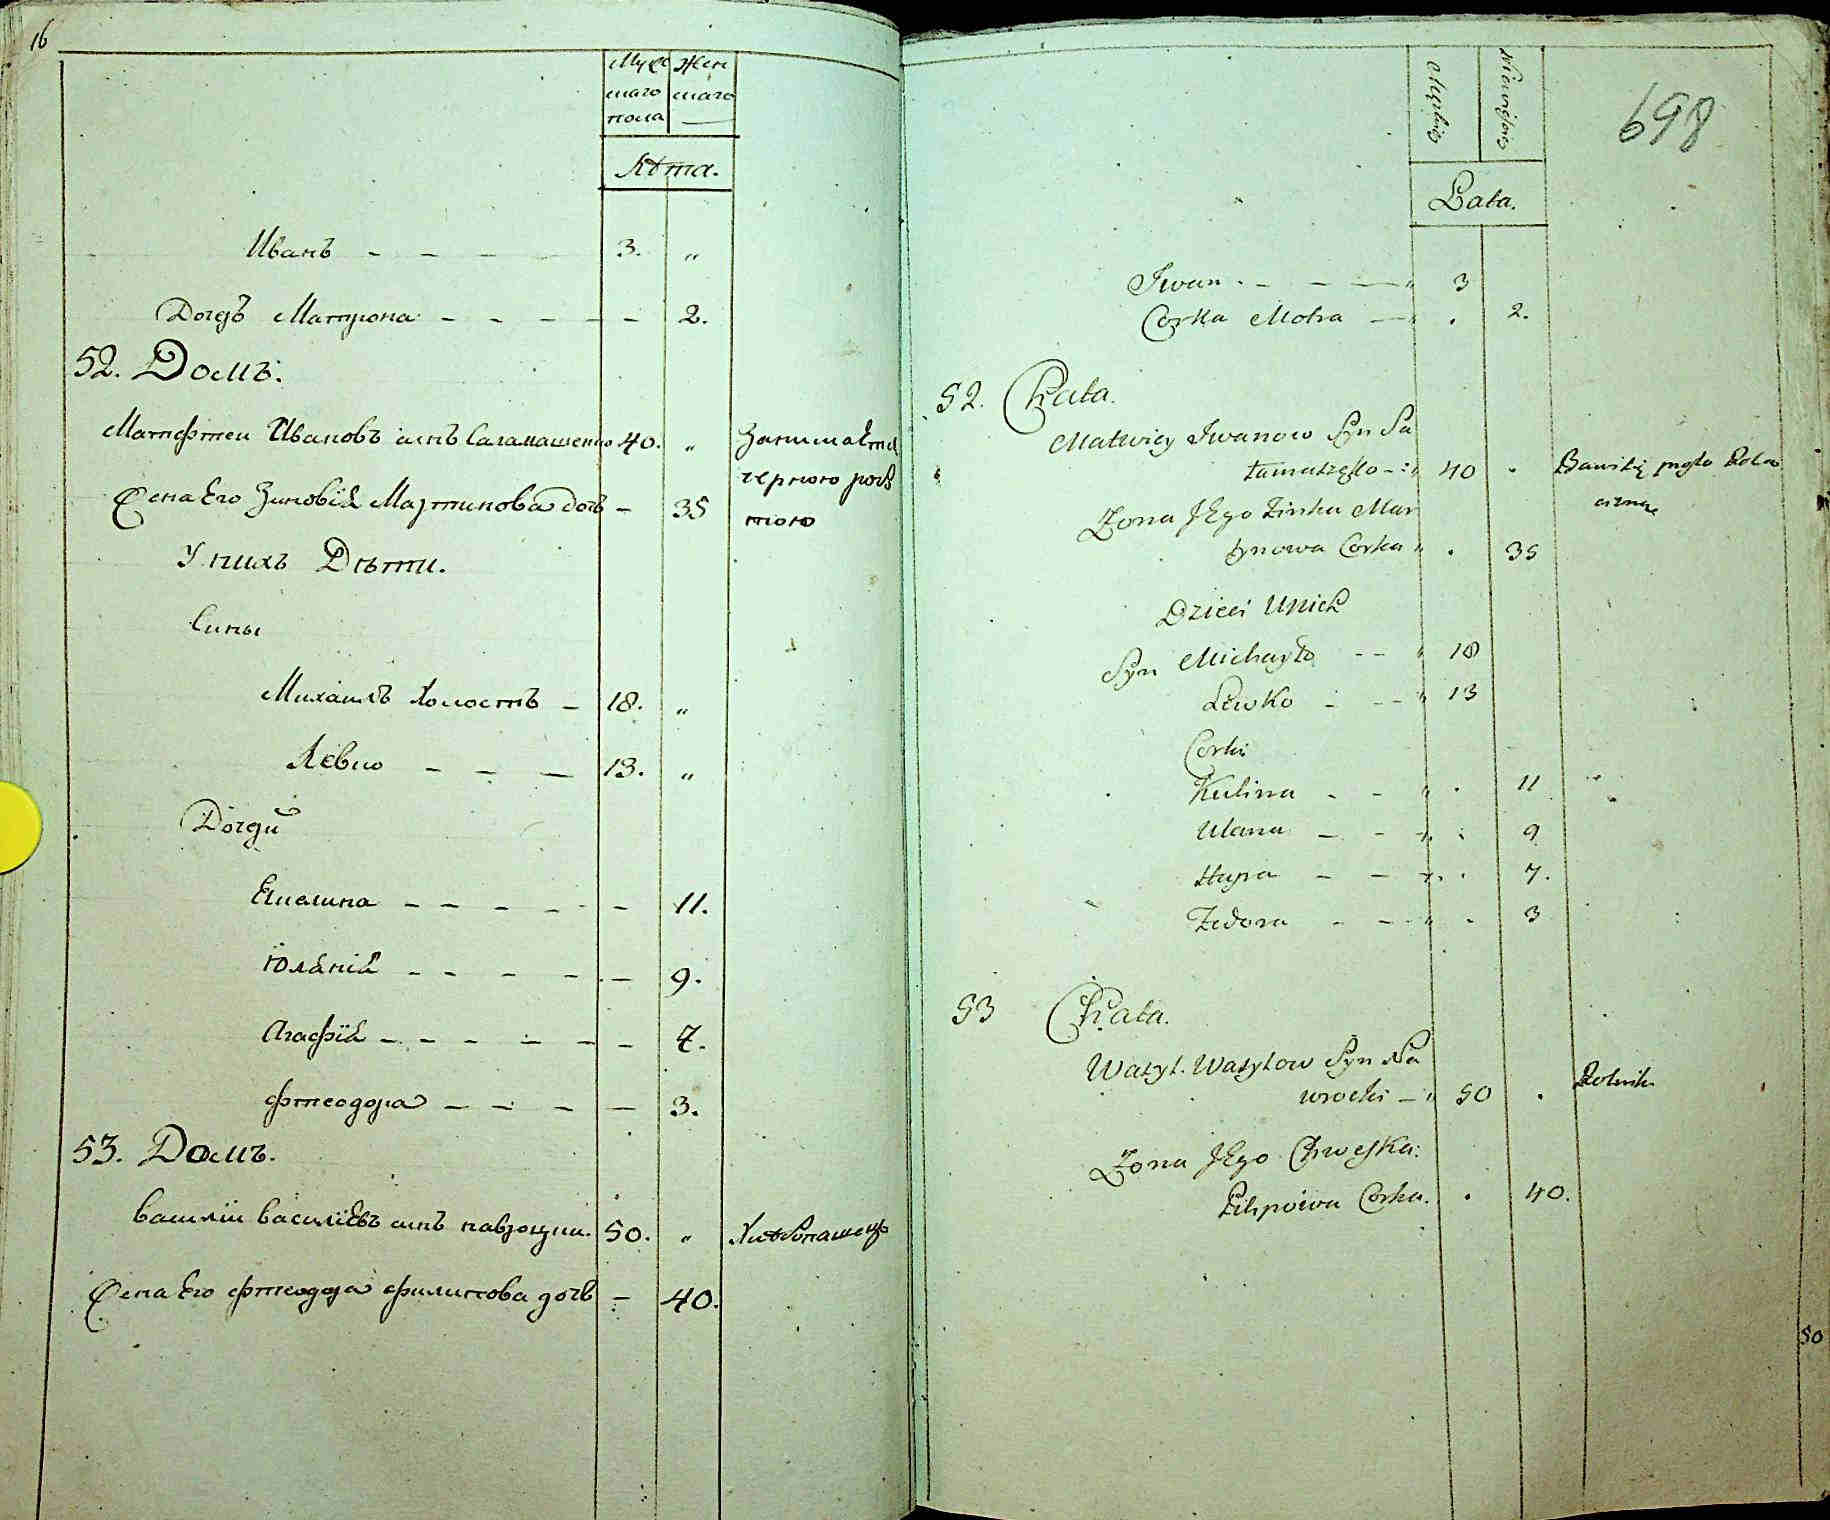 16
Мужс Жен
скаго скаго
пола
Лѣта.
Иванъ - - - - 3. "
Дочеръ Матрона - - - - - 2.
52. Домъ.
Матфтеи Ивановъ синъ Саламашенко 40. " Занимаѣтся
черною робо
тою
Жена Его Зиновія Мартинова дочь - 35
У нихъ Дѣти.
Сины
Михаилъ холостъ - 18. "
Левко - - - 13. "
Дочери
Екилина - - - - - - 11.
Юлянія - - - - - 9.
Агафія - - - - - - 7.
Фтеодора - - - - - 3.
53. Домъ.
Василіи Василіевъ синъ Навроцки. 50. " Хлѣбопашецъ
Жена Его Фтеодора Филипова дочь - 40.
698
Męzkie Niewieście
Lata.
Iwan - - - 3
Corka Motra - . 2.
52. Chata.
Matwiey Iwanow Syn Sa
łamaszęko - 40 . Bawi się
Zona JEgo Zinka Mar
tynowa Corka . 35
Dzieci Unich
Syn Michayło - - 18
Lewko - - - 13
Corki
Kulina - - . 11
Ulana - - . 9
Hapa - - . 7.
Fedora - - - 3
53 Chata.
Wasyl Wasylow Syn Na
wrocki - 50 . Rolnik
Zona JEgo Chweśka
Filipowa Corka. . 40.
50